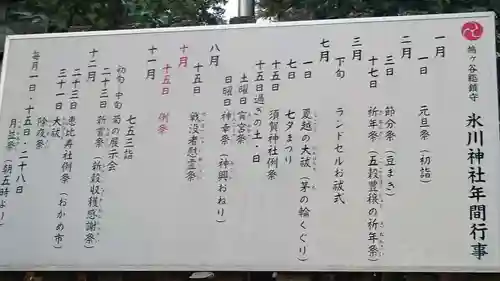 鳩ヶ谷総鎮守
氷川神社年間行事
一月
一日 元旦祭（初詣）
二月
三日 節分祭（豆まき）
十七日 祈年祭（五穀豊穣の祈年祭）
三月
下旬 ランドセルお祓式
七月
一日 夏越の大祓（茅の輪くぐり）
七日 七夕まつり
十五日 須賀神社例祭
十五日過ぎの土・日
土曜日 宵宮祭
日曜日 神幸祭（神輿おねり）
八月
十五日 戦没者慰霊祭
十月
十五日 例祭
十一月
七五三詣
初旬・中旬 菊の展示会
二十三日 新嘗祭（新穀収穫感謝祭）
十二月
二十三日 恵比寿社例祭（おかめ市）
三十一日 大祓
除夜祭
毎月一日・十五日・二十八日
月並祭（朝五時より）